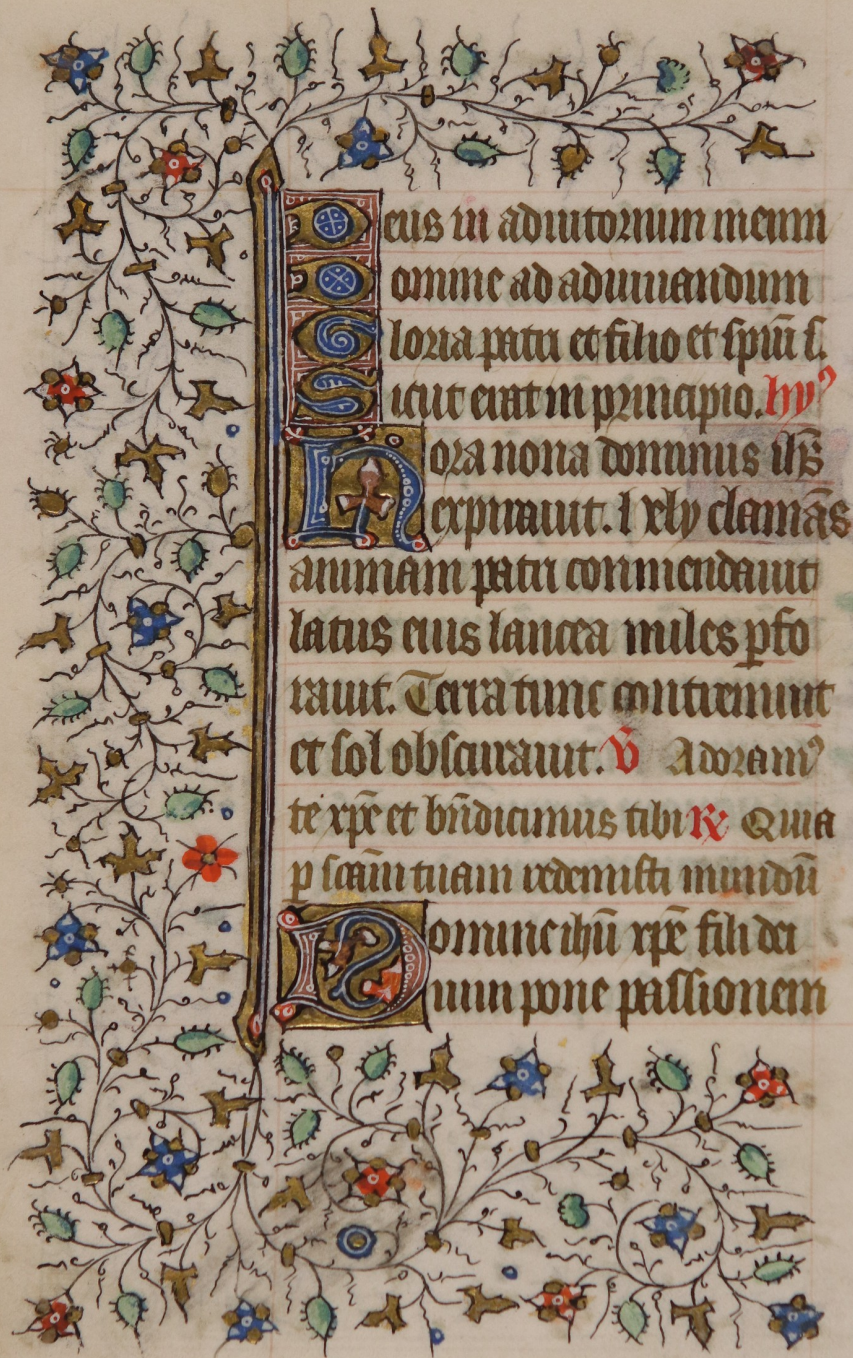 Deus in adiutorium meum
Domine ad adiuuandum
Gloria patri et filio et spiū s.
Sicut erat in principio. hyꝰ
Hora nona dominus ihs̄
expirauit. hely clamās
animam patri conmendauit
latus eius lancea miles ꝑfo
rauit. Terra tunc contremuit
et sol obscurauit. V̄ Adoramꝰ
te xp̄e et bn̄dicimus tibi ℟ Quia
ꝑ scām tuam redemisti mundū
Domine ihū xp̄e fili dei
uiui pone passionem